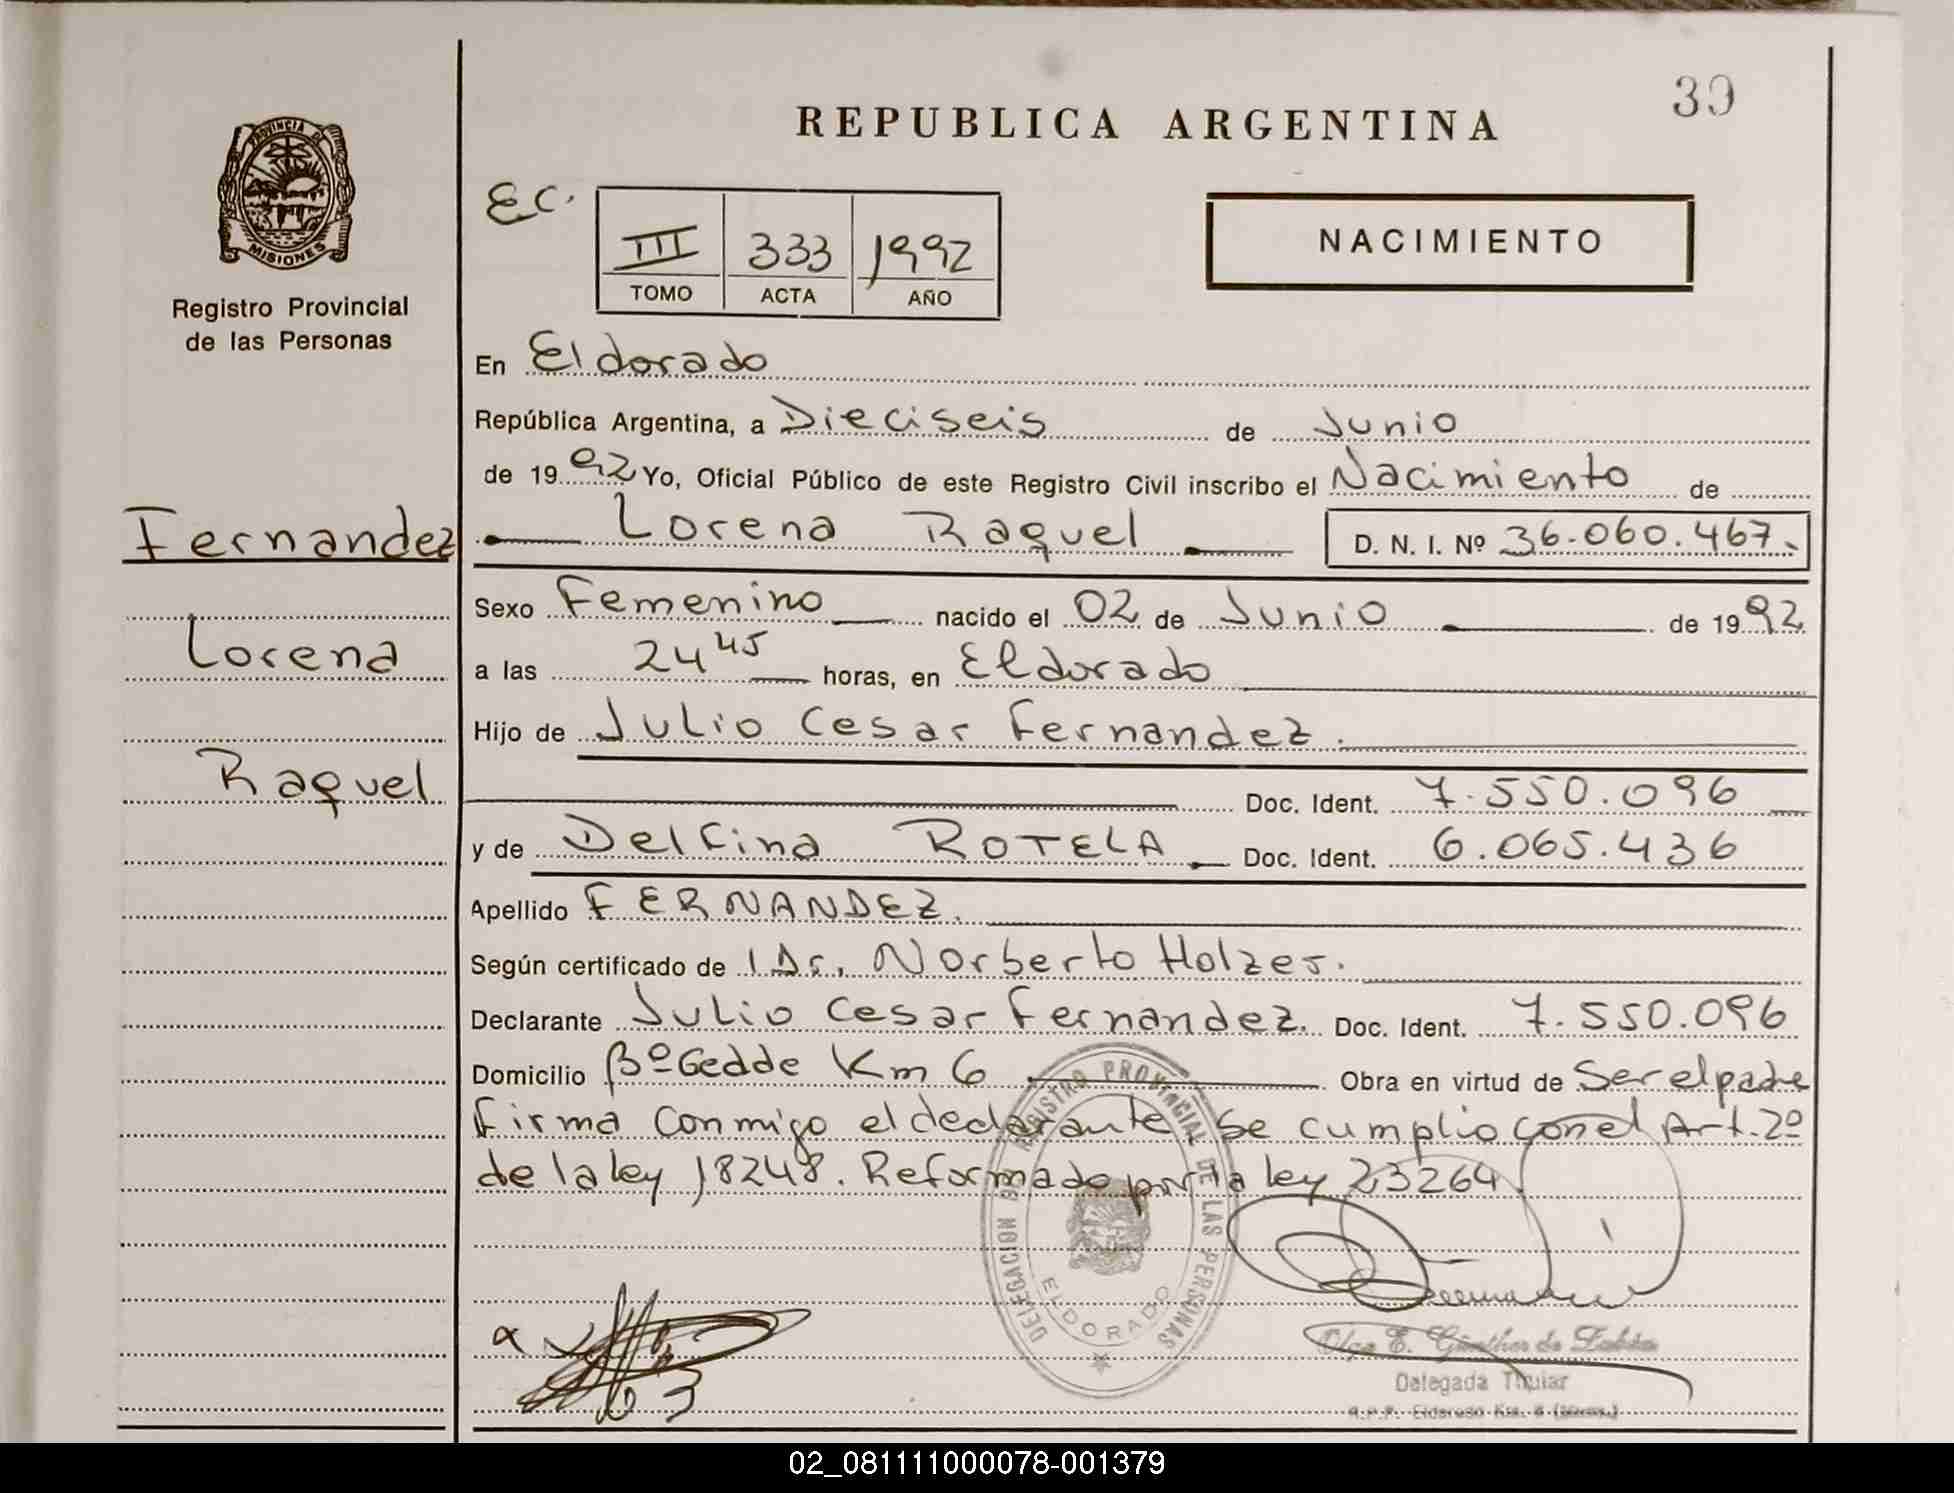 39
REPUBLICA ARGENTINA
PROVINCIA DE
MISIONES
Registro Provincial
de las Personas
EC.
III 333 1992
TOMO ACTA AÑO
NACIMIENTO
En Eldorado
República Argentina, a Dieciseis de Junio
de 1992 Yo, Oficial Público de este Registro Civil inscribo el Nacimiento de
Fernandez
Lorena Raquel D. N. I. Nº 36.060.467.
Sexo Femenino nacido el 02 de Junio de 1992
Lorena
a las 24 45 horas, en Eldorado
Hijo de Julio Cesar Fernandez.
Raquel
Doc. Ident. 7.550.096
y de Delfina ROTELA Doc. Ident. 6.065.436
Apellido FERNANDEZ.
Según certificado de Dr. Norberto Holzer.
Declarante Julio Cesar Fernandez. Doc. Ident. 7.550.096
Domicilio Bº Gedde Km 6 Obra en virtud de Ser el padre
Firma conmigo el declarante, se cumplio con el Art. 2º
de la ley 18248. Reformado por la ley 23264.
REGISTRO PROVINCIAL DE LAS PERSONAS
DELEGACION
ELDORADO
Olga E. Günther de
Delegada Titular
R.P.P. Eldorado Km.
02_081111000078-001379